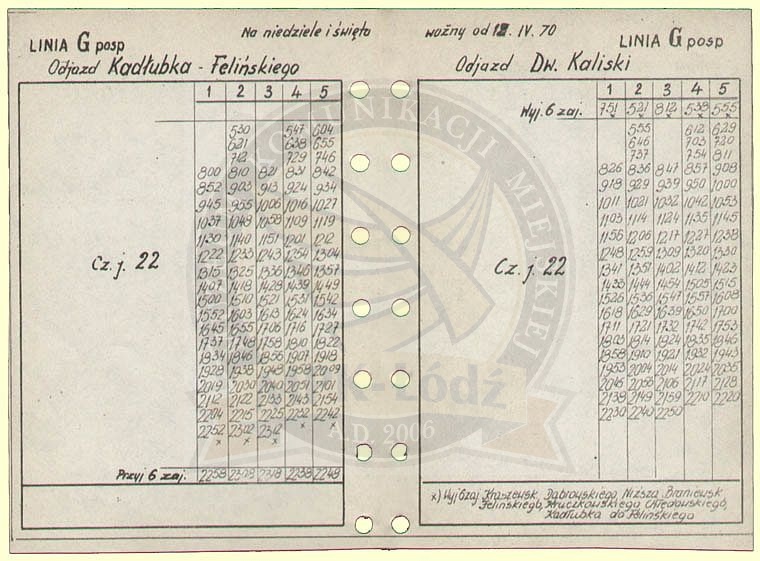 LINIA G posp
Na niedziele i święta
Odjazd Kadłubka - Felińskiego
1 2 3 4 5
530 547 604
621 638 655
712 729 746
800 810 821 831 842
852 903 913 924 934
945 955 1006 1016 1027
1037 1048 1058 1109 1119
1130 1140 1151 1201 1212
Cz. j. 22
1222 1233 1243 1254 1304
1315 1325 1336 1346 1357
1407 1418 1428 1439 1449
1500 1510 1521 1531 1542
1552 1603 1613 1624 1634
1645 1655 1706 1716 1727
1737 1748 1758 1810 1822
1834 1846 1856 1907 1918
1928 1938 1948 1958 2009
2019 2030 2040 2051 2101
2112 2122 2133 2143 2154
2204 2215 2225 2232 2242
2252 2302 2312 x x
x x x
Przyj 6 zaj. 2258 2308 2318 2238 2248
ważny od IV. 70
LINIA G posp
Odjazd Dw. Kaliski
1 2 3 4 5
Wyj. 6 zaj. 751 521 812 538 555
x x x x x
555 612 629
646 703 720
737 754 811
826 836 847 857 908
918 929 939 950 1000
1011 1021 1032 1042 1053
1103 1114 1124 1135 1145
1156 1206 1217 1227 1238
1248 1259 1309 1320 1330
Cz. j. 22
1341 1351 1402 1412 1423
1433 1444 1454 1505 1515
1526 1536 1547 1557 1608
1618 1629 1639 1650 1700
1711 1721 1732 1742 1753
1803 1814 1824 1835 1846
1858 1910 1921 1932 1943
1953 2004 2014 2024 2035
2045 2056 2106 2117 2128
2138 2149 2159 2210 2220
2230 2240 2250
x) Wyj 6 zaj Kraszewsk. Dąbrowskiego, Niższa, Braniewsk
Felińskiego, Kruczkowskiego Chłędowskiego,
Kadłubka do Felińskiego
KOMUNIKACJI MIEJSKIEJ
Łódź
A.D. 2006